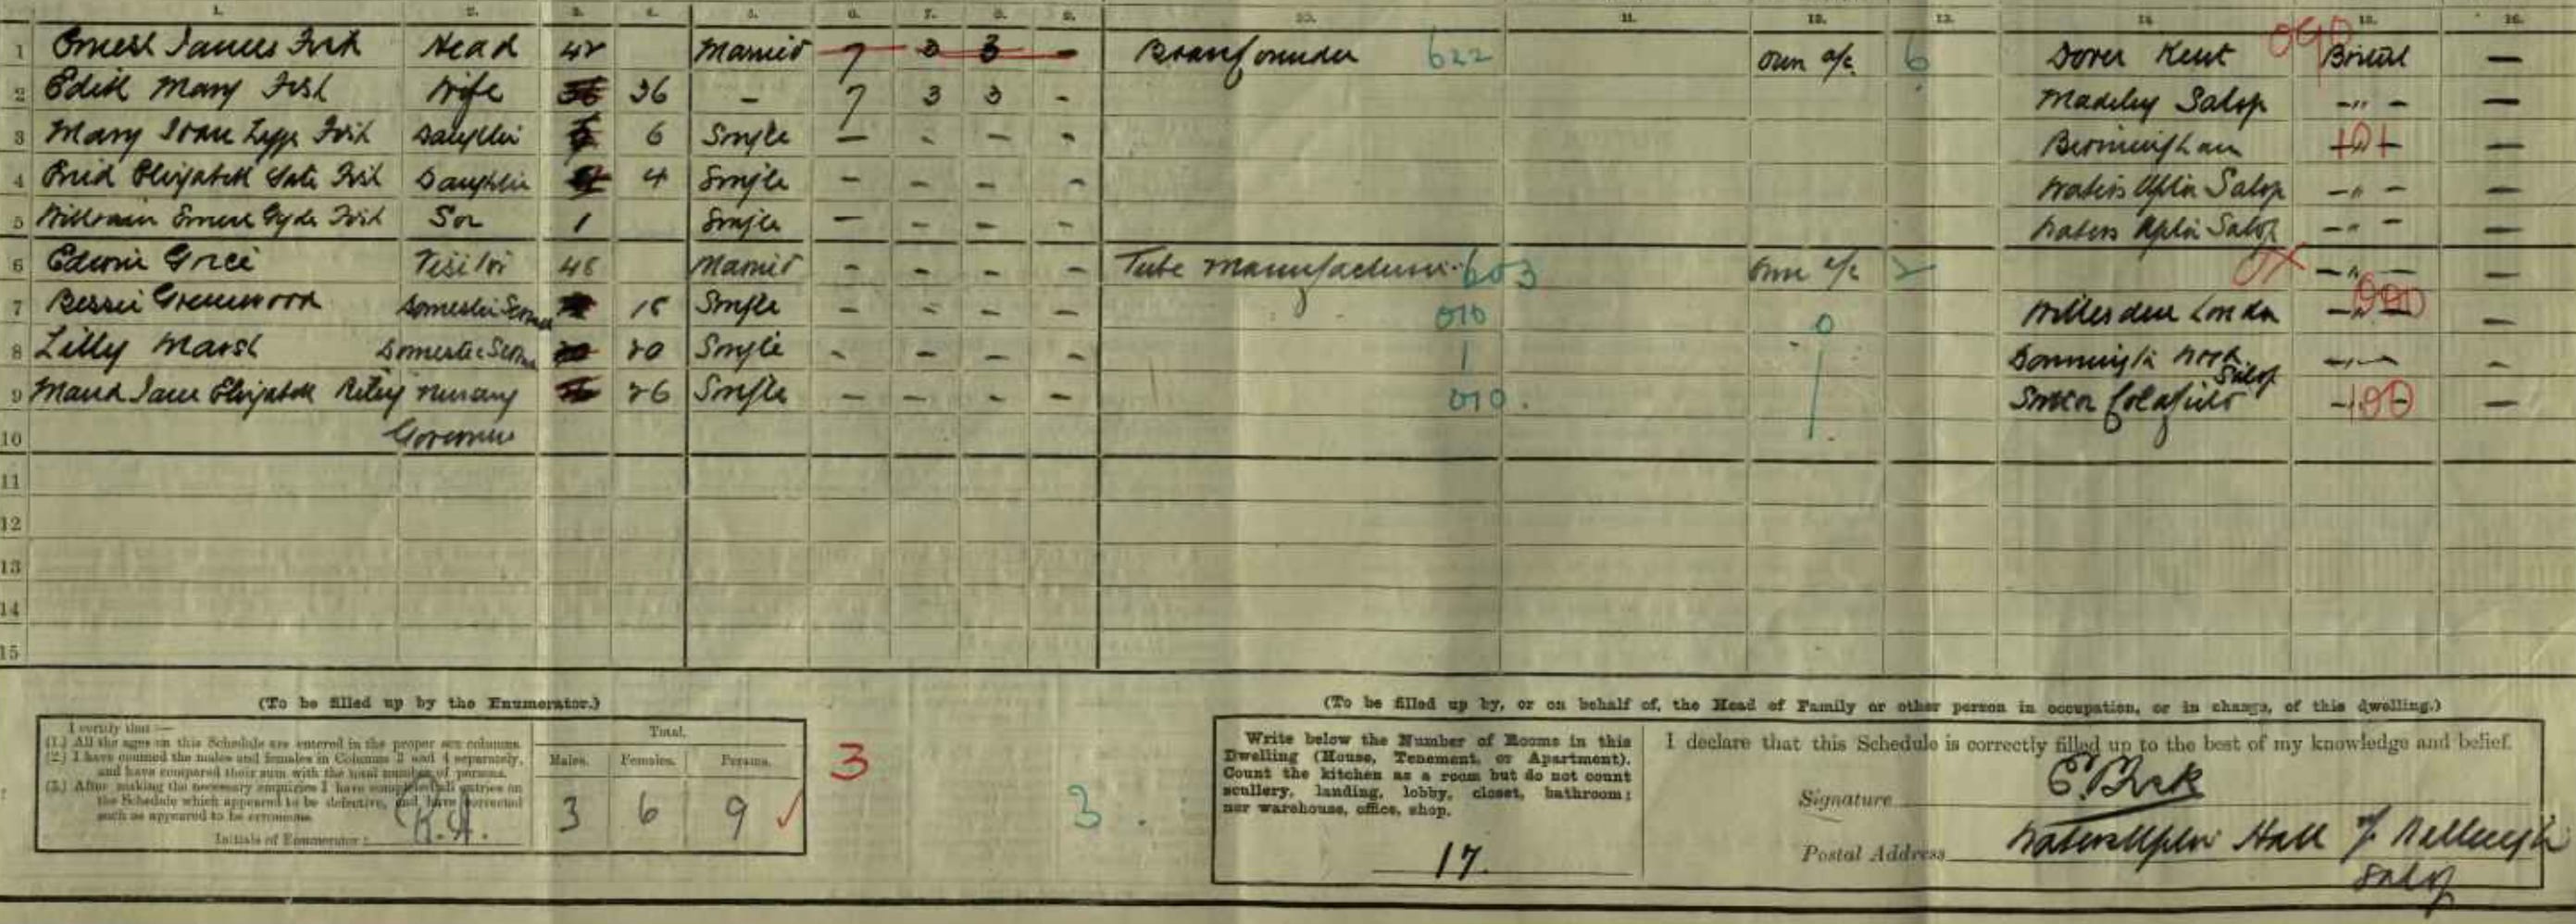 1. 2. 3. 4. 5. 6. 7. 8. 9. 10. 11. 12. 13. 14. 15. 16.
1 Ernest James Fisk Head 42 Married 7 3 3 - Brassfounder 622 own a/c 6 Dover Kent 090 Bristol —
2 Edith Mary Fisk Wife 36 36 - 7 3 3 - Madeley Salop -"- —
3 Mary Joan Fisk Daughter 6 6 Single - - - - Birmingham —
4 Elizabeth Fisk Daughter 4 4 Single - - - - Waters Upton Salop -"- —
5 William Ernest Fisk Son 1 Single - - - - Waters Upton Salop -"- —
6 Edwin Visitor 48 Married - - - - Tube Manufacturer 603 own a/c 2 -"- —
7 Bessie Greenwood Domestic Servant 18 Single - - - - 010 0 Willesden London —
8 Lilly Marsh Domestic Servant 20 20 Single - - - - 1 Donnington Wood Salop -
9 Maud Jane Elizabeth Riley Nursery 26 26 Single - - - - 010. Sutton Coldfield 100 —
10 Governess
11
12
13
14
15
(To be filled up by the Enumerator.)
I certify that:—
(1.) All the ages on this Schedule are entered in the proper sex columns.
(2.) I have counted the males and females in Columns 3 and 4 separately, and have compared their sum with the total number of persons.
(3.) After making the necessary enquiries I have completed all entries on the Schedule which appeared to be defective, and have corrected such as appeared to be erroneous.
Initials of Enumerator:
Total.
Males. Females. Persons.
3 6 9
3
3.
(To be filled up by, or on behalf of, the Head of Family or other person in occupation, or in charge, of this dwelling.)
Write below the Number of Rooms in this
Dwelling (House, Tenement, or Apartment).
Count the kitchen as a room but do not count
scullery, landing, lobby, closet, bathroom;
nor warehouse, office, shop.
17.
I declare that this Schedule is correctly filled up to the best of my knowledge and belief.
Signature E. Fisk
Postal Address Waters Upton Hall Nr Wellington
Salop